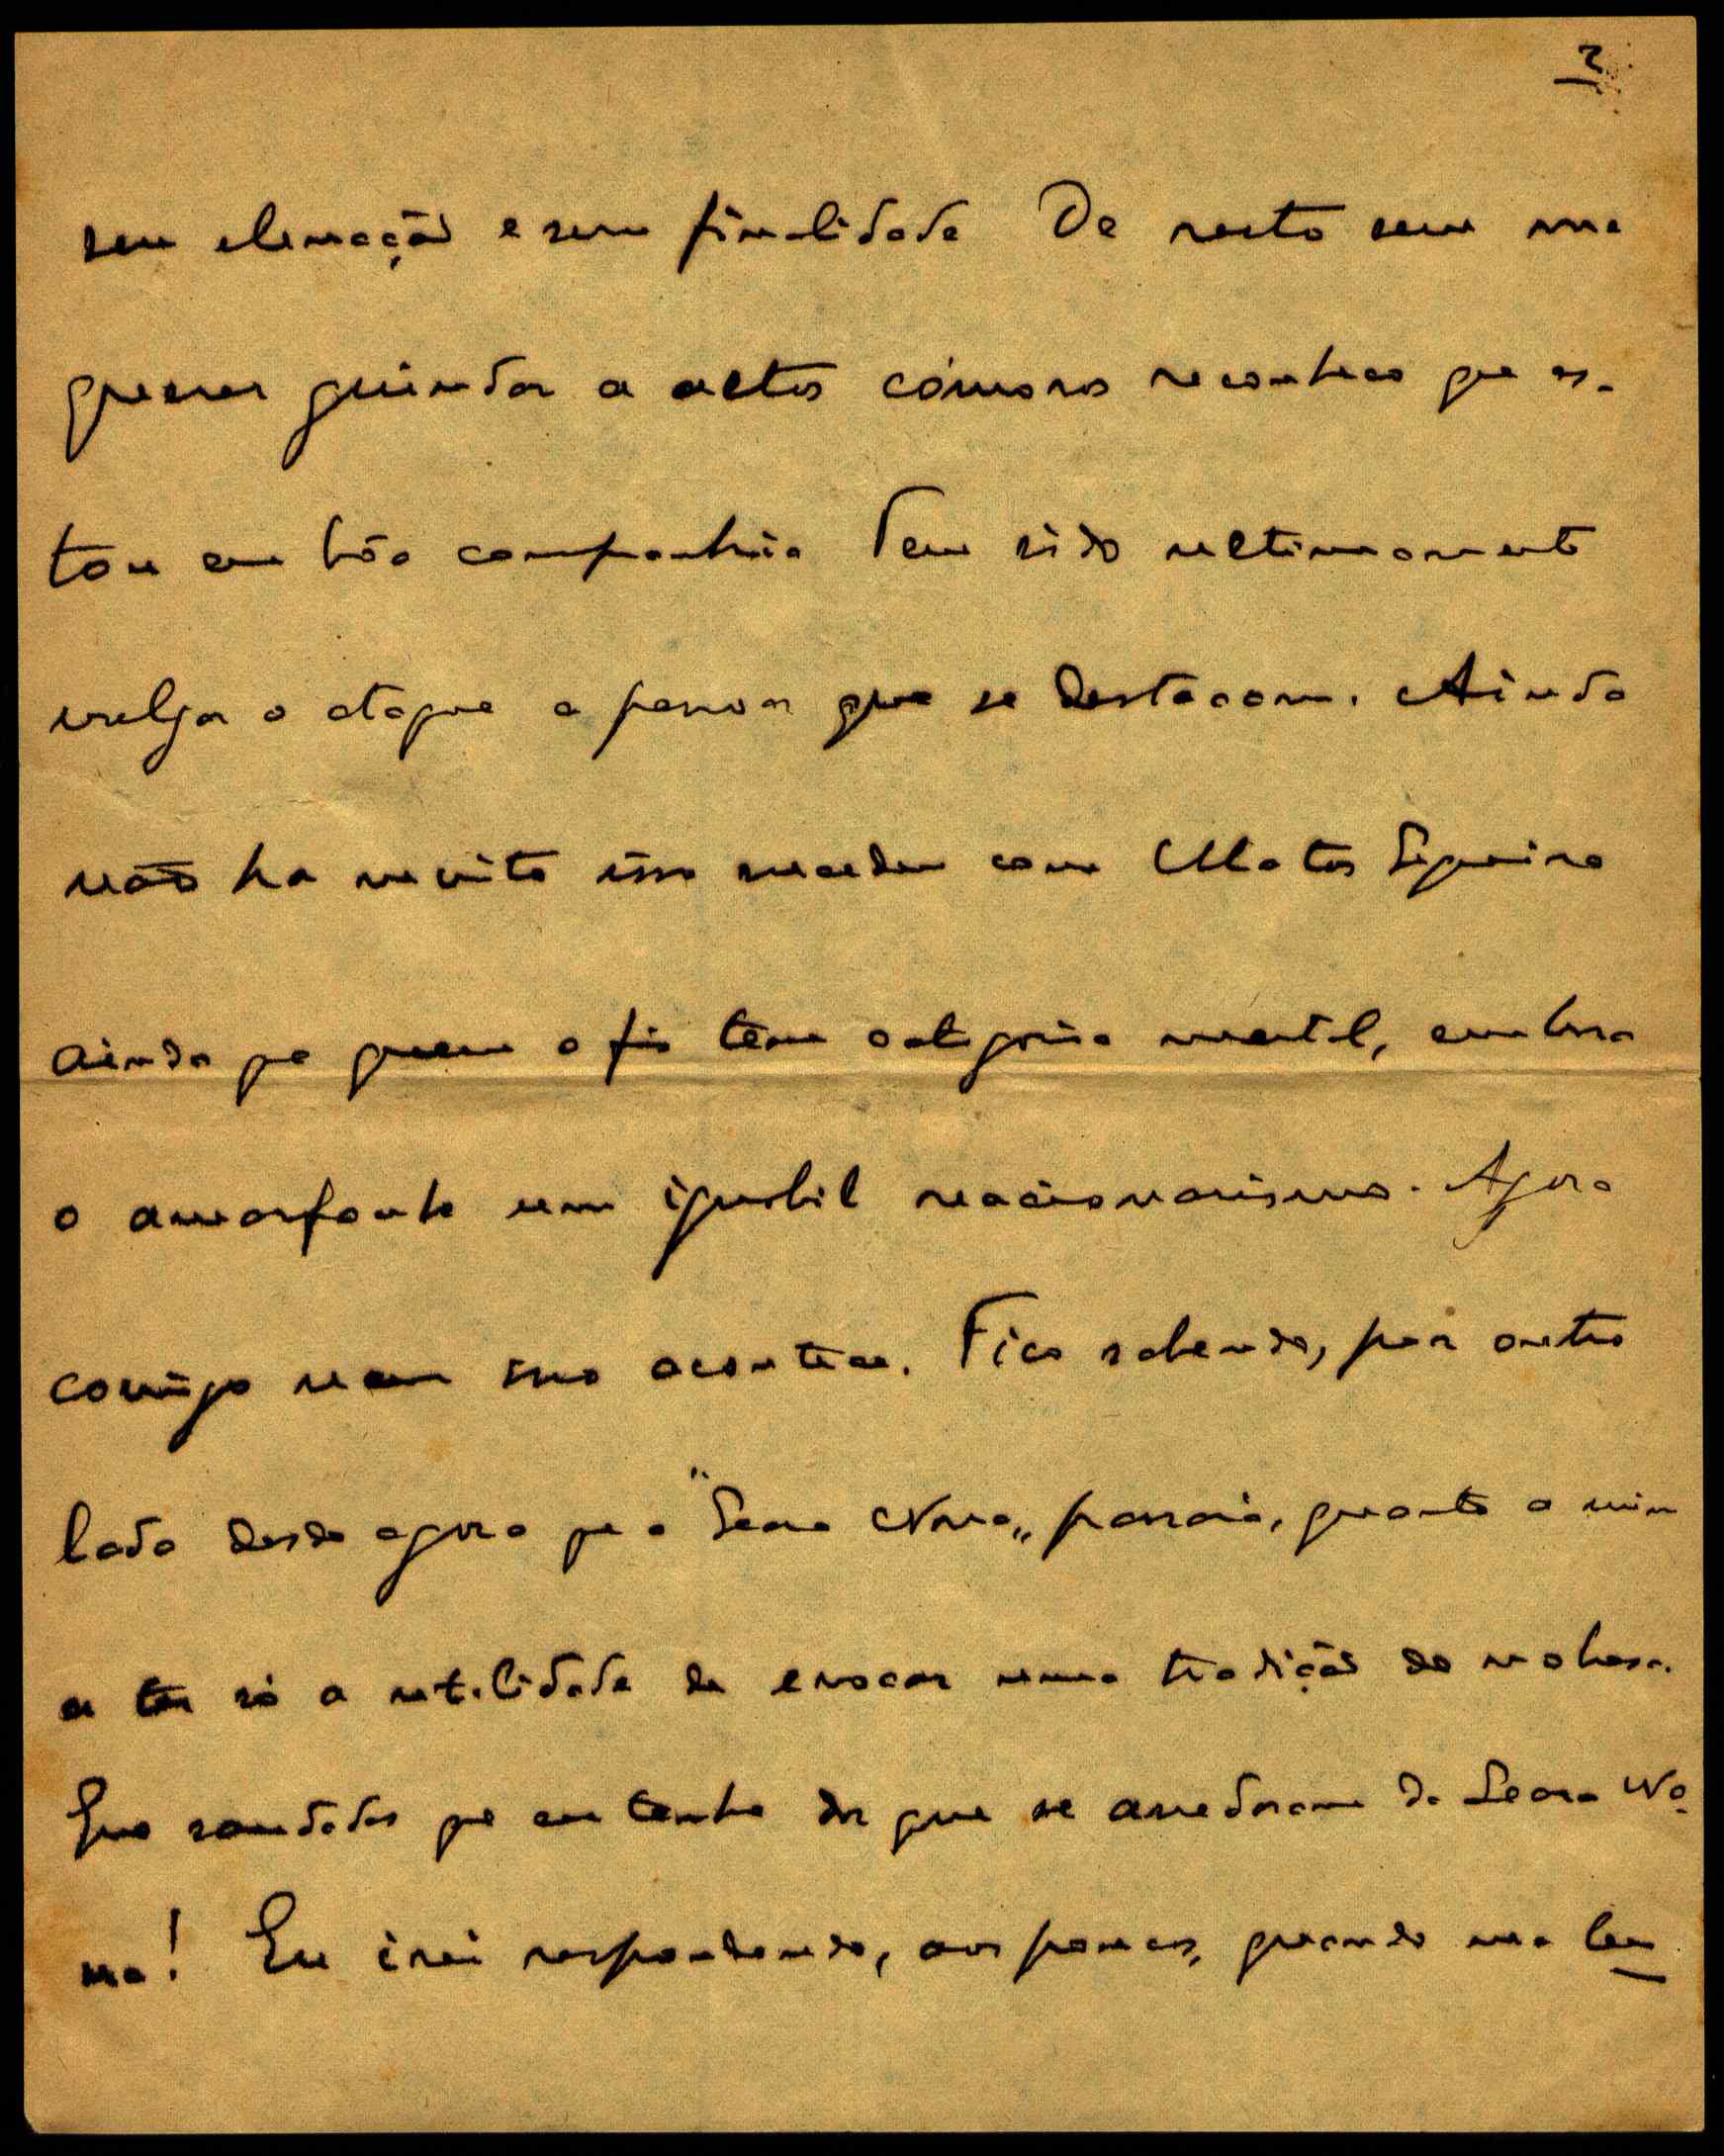 2
sem elevação e sem finalidade De resto sem me
querer guindar a altos cómoros reconheco que es-
tou em bôa companhia Tem sido ultimamente
vulgar o ataque a pessoas que se destacam. Ainda
não ha muito isso sucedeu com Matos Sequeira
ainda que quem o fis tem categoria mental, embora
o amorfanhe um ignobil reacionarismo. Agora
comigo nem isso acontece. Fico sabendo, por outro
lado desde agora que a "Seara Nova„ passará, quanto a mim
a ter só a utilidade de evocar uma tradição de nobresa.
Que saudades que eu tenho dos que se arredaram da Seara No-
va! Eu irei respondendo, aos poucos, quando me lem